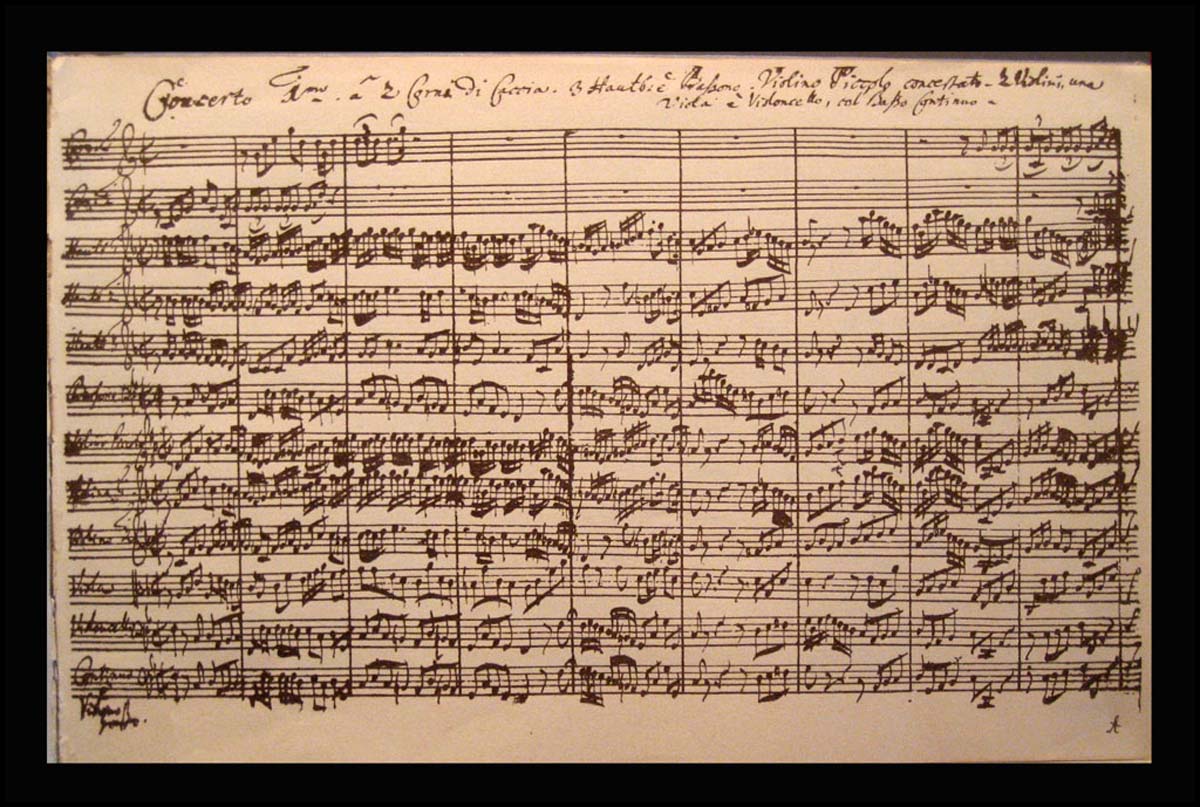 Concerto 1mo à 2 Corni di Caccia. 3 Hautb: è Bassono. Violino Piccolo concertato. 2 Violini, una
Viola è Violoncello, col Basso Continuo.
Corno 2
Hautb 1
Hautb 2
Hautb
Bassono
Violino Piccolo
Violino
Violino 2
Viola
Violoncello
Continuo
Violono
grosso.